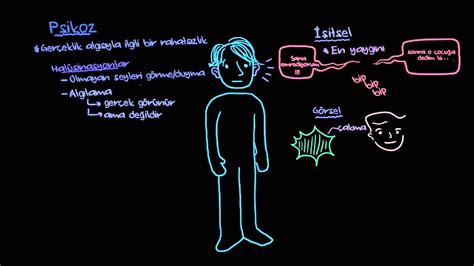 Psikoz
* Gerçeklik algısıyla ilgili bir rahatsızlık
Halüsinasyonlar
- Olmayan şeyleri görme/duyma
- Algılama
gerçek görünür
ama değildir
İşitsel
* En yaygını
Sana
emrediyorum
!!!
sonra o çocuğa
dedim ki...
bip
bip
bip
Görsel
çakma